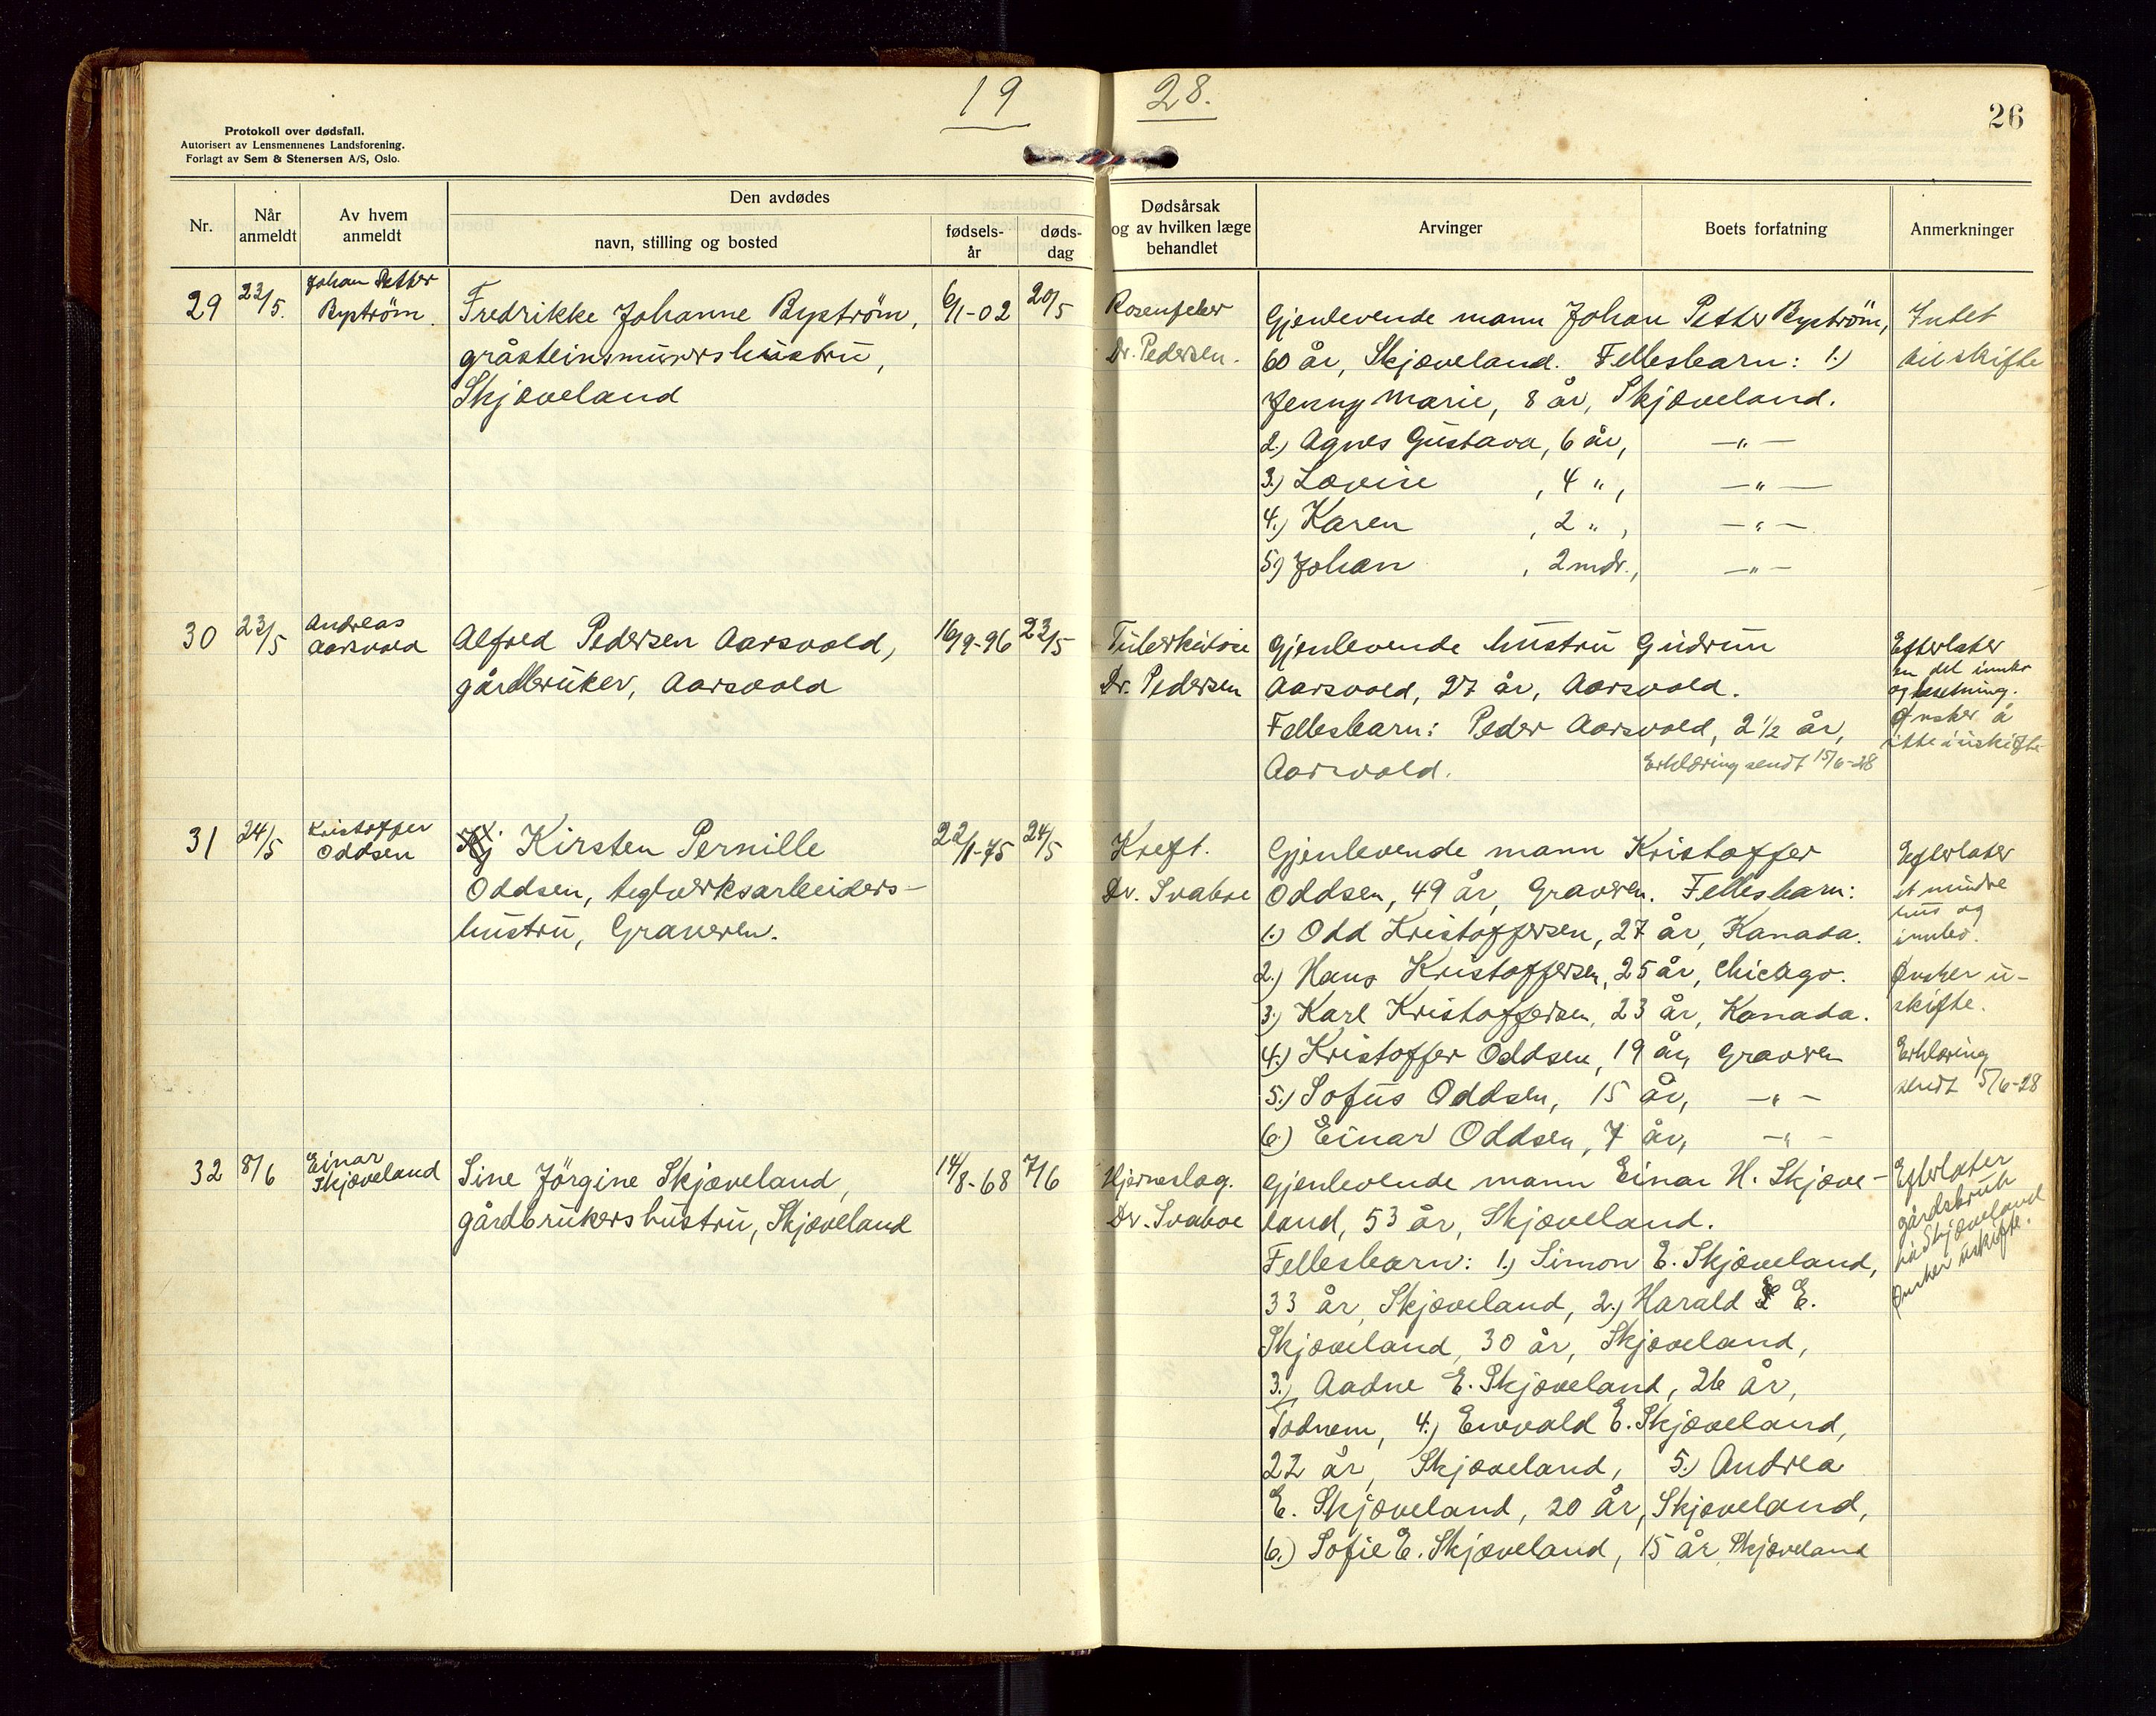 19 28.
26
Protokoll over dødsfall.
Autorisert av Lensmennenes Landsforening.
Forlagt av Sem & Stenersen A/S, Oslo.
Nr.
Når anmeldt
Av hvem anmeldt
Den avdødes
navn, stilling og bosted
fødsels-år
døds-dag
Dødsårsak og av hvilken læge behandlet
Arvinger
Boets forfatning
Anmerkninger
29 22/5. Johan Petter Byström.
Fredrikke Johanne Byström,
gråsteinsmurershustru,
Skjæveland
6/1-02 20/5
Rosenfeber
Dr. Pedersen.
Gjenlevende mann Johan Petter Byström,
60 år, Skjæveland. Fellesbarn: 1.)
Jenny Marie, 8 år, Skjæveland.
2.) Agnes Gustava, 6 år, —"—
3.) Lovise, 4 ", —"—
4.) Karen, 2 ", —"—
5.) Johan, 2 mdr., —"—
Intet
til skifte
30 23/5 Andreas Aarsvold
Alfred Pedersen Aarsvold,
gårdbruker, Aarsvold
16/9-96 22/5
Tuberkulose
Dr. Pedersen
Gjenlevende hustru Gudrun
Aarsvold, 27 år, Aarsvold.
Fellesbarn: Peder Aarsvold, 2 1/2 år,
Aarsvold.
Erklæring sendt 15/6-28
Efterlater
en del innbo
og besetning.
Ønsker å
sitte i uskifte
31 24/5 Kristoffer Oddsen
Kirsten Pernille
Oddsen, teglverksarbeiders-
hustru, Graveren.
22/1-75 24/5
Kreft.
Dr. Svaboe
Gjenlevende mann Kristoffer
Oddsen, 49 år, Graveren. Fellesbarn:
1.) Odd Kristoffersen, 27 år, Kanada.
2.) Hans Kristoffersen, 25 år, Chicago.
3.) Karl Kristoffersen, 23 år, Kanada.
4.) Kristoffer Oddsen, 19 år, Graveren
5.) Sofus Oddsen, 15 år, —"—
6.) Einar Oddsen, 7 år, —"—
Efterlater
et mindre
hus og
innbo.
Ønsker u-
skifte.
Erklæring
sendt 5/6-28
32 8/6 Einar Skjæveland
Sine Jörgine Skjæveland,
gårdbrukershustru, Skjæveland
14/8-68 7/6
Hjerneslag.
Dr. Svaboe
Gjenlevende mann Einar H. Skjæve-
land, 53 år, Skjæveland.
Fellesbarn: 1.) Simon E. Skjæveland,
33 år, Skjæveland, 2.) Harald E.
Skjæveland, 30 år, Skjæveland,
3.) Aadne E. Skjæveland, 26 år,
Todnem, 4.) Enevald E. Skjæveland,
22 år, Skjæveland, 5.) Andrea
E. Skjæveland, 20 år, Skjæveland,
6.) Sofie E. Skjæveland, 15 år, Skjæveland
Efterlater
gårdsbruk
på Skjæveland
Ønsker uskifte.